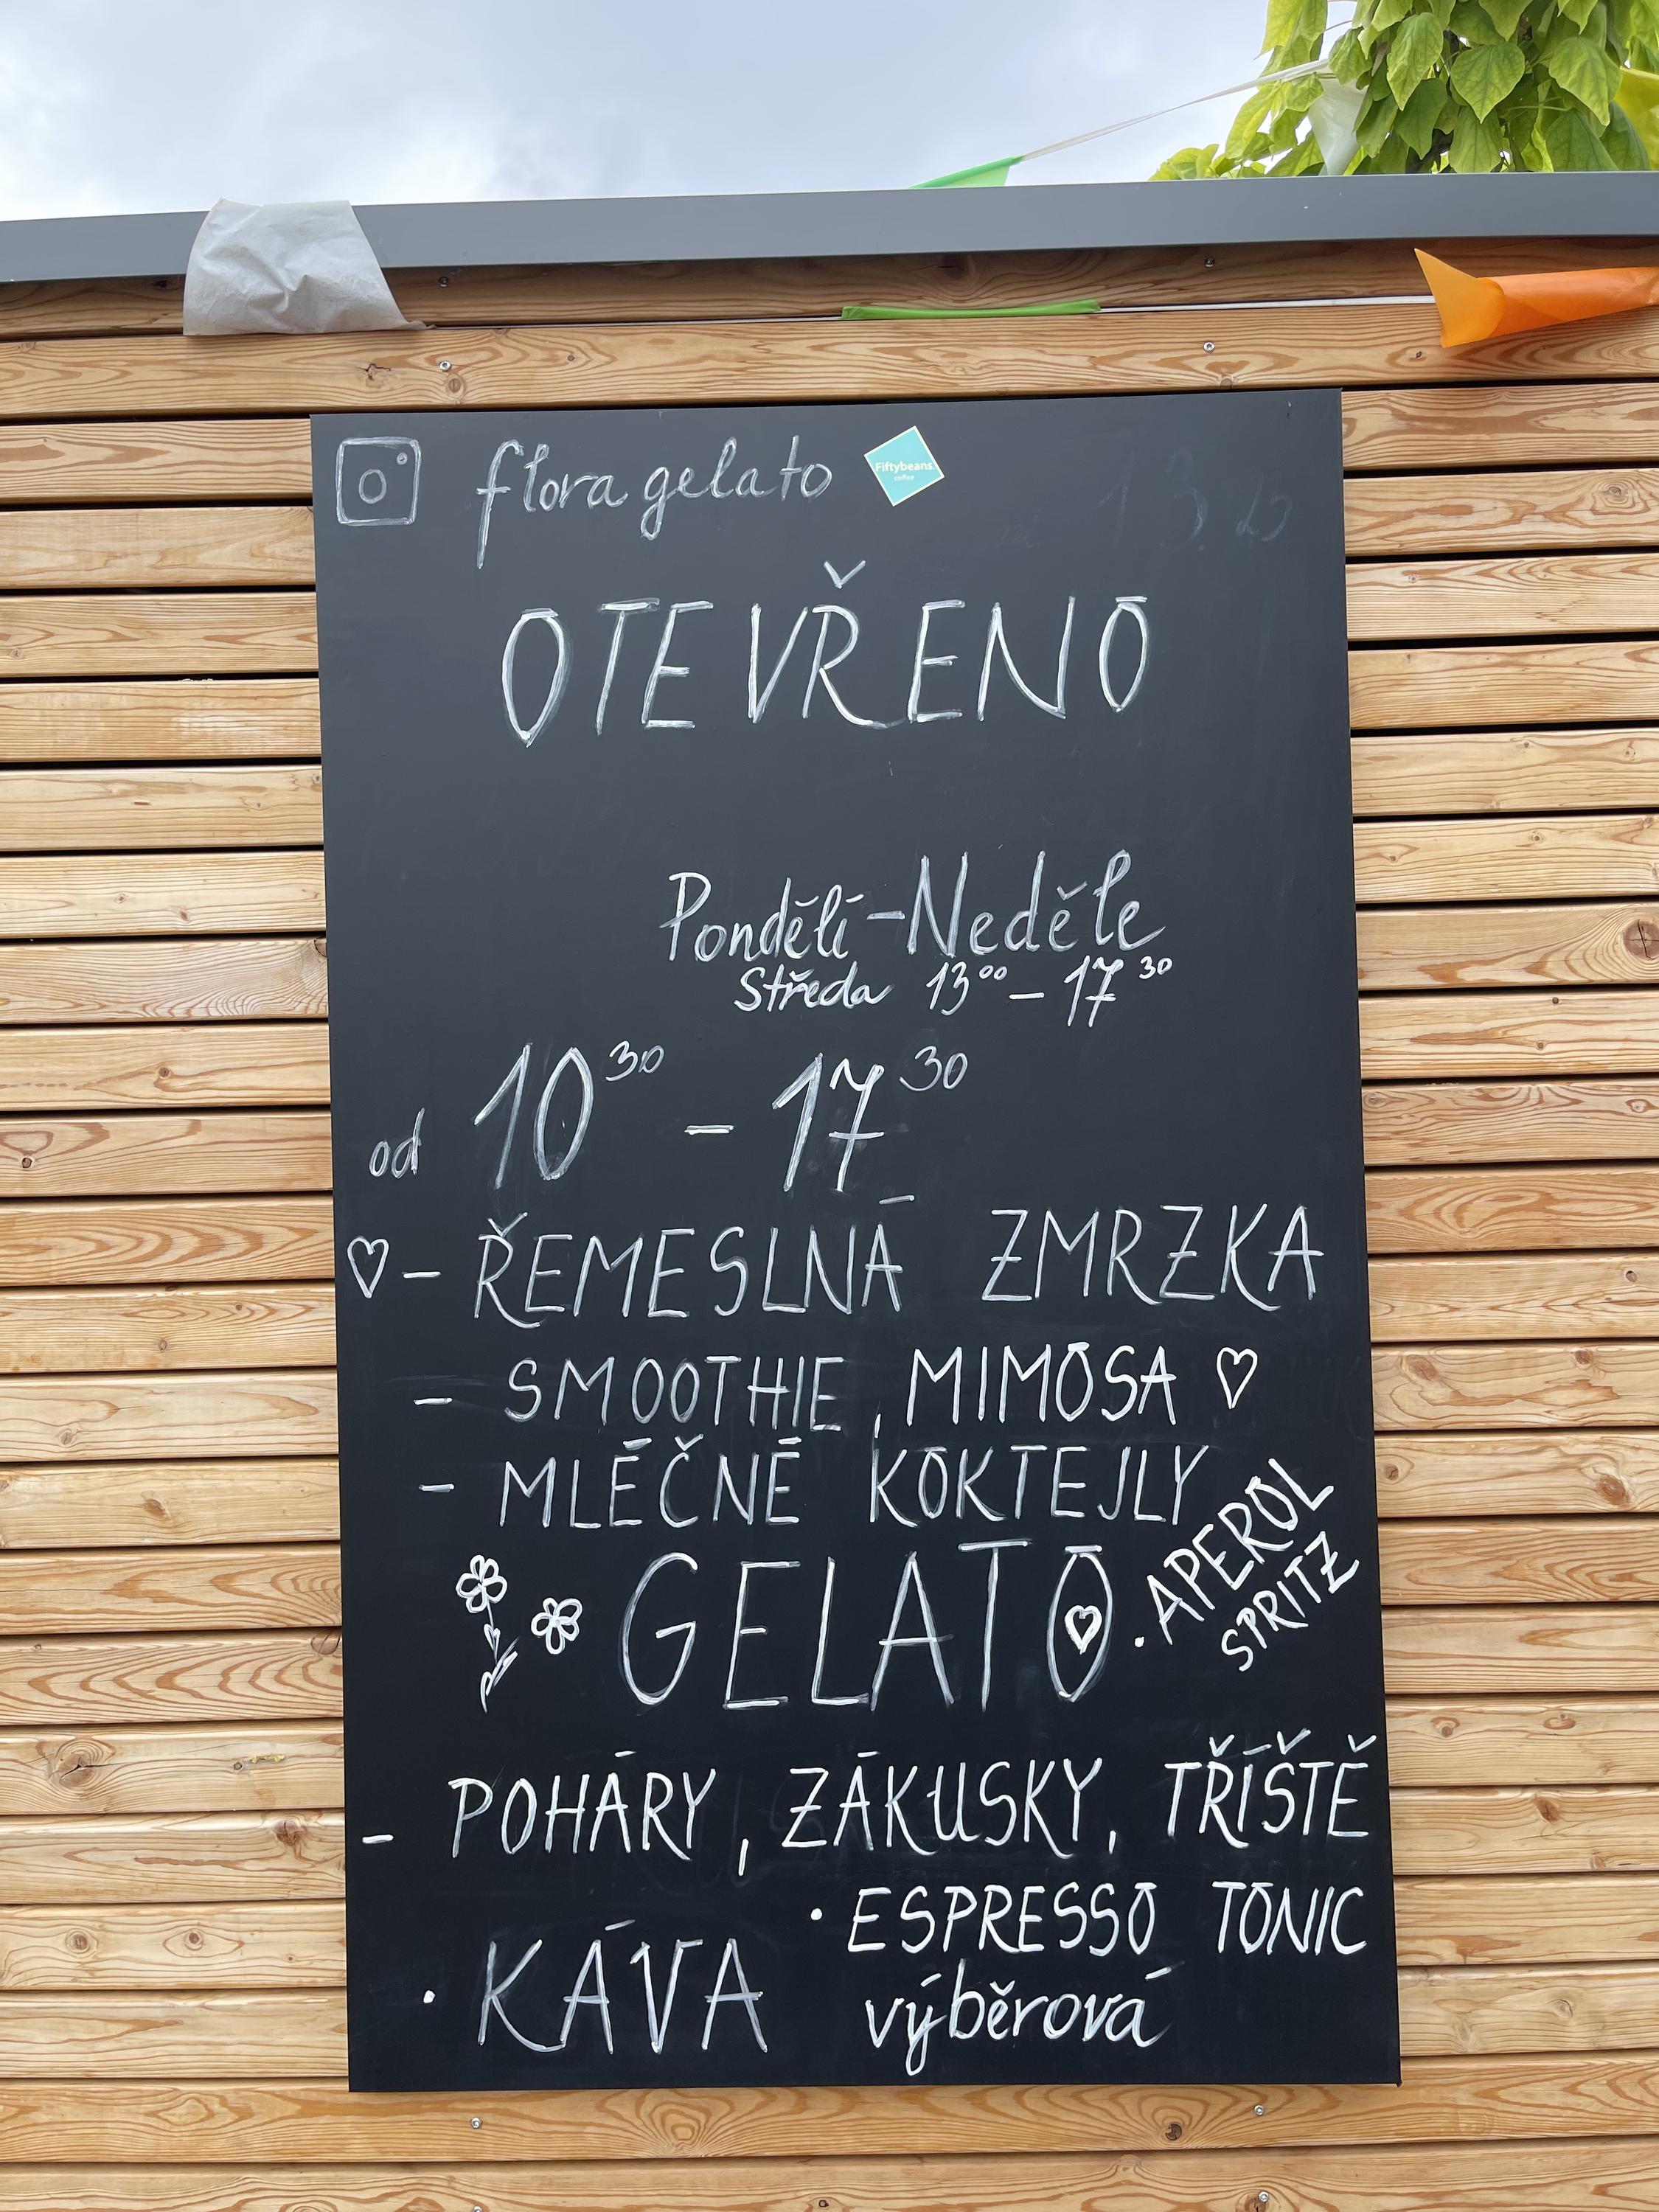 flora gelato
Fiftybeans
coffee
OTEVŘENO
Pondělí-Neděle
Středa 13⁰⁰ - 17³⁰
od 10³⁰ - 17³⁰
♡- ŘEMESLNÁ ZMRZKA
- SMOOTHIE, MIMOSA ♡
- MLÉČNÉ KOKTEJLY
GELATO
• APEROL
SPRITZ
- POHÁRY, ZÁKUSKY, TŘÍŠTĚ
• ESPRESSO TONIC
• KÁVA výběrová